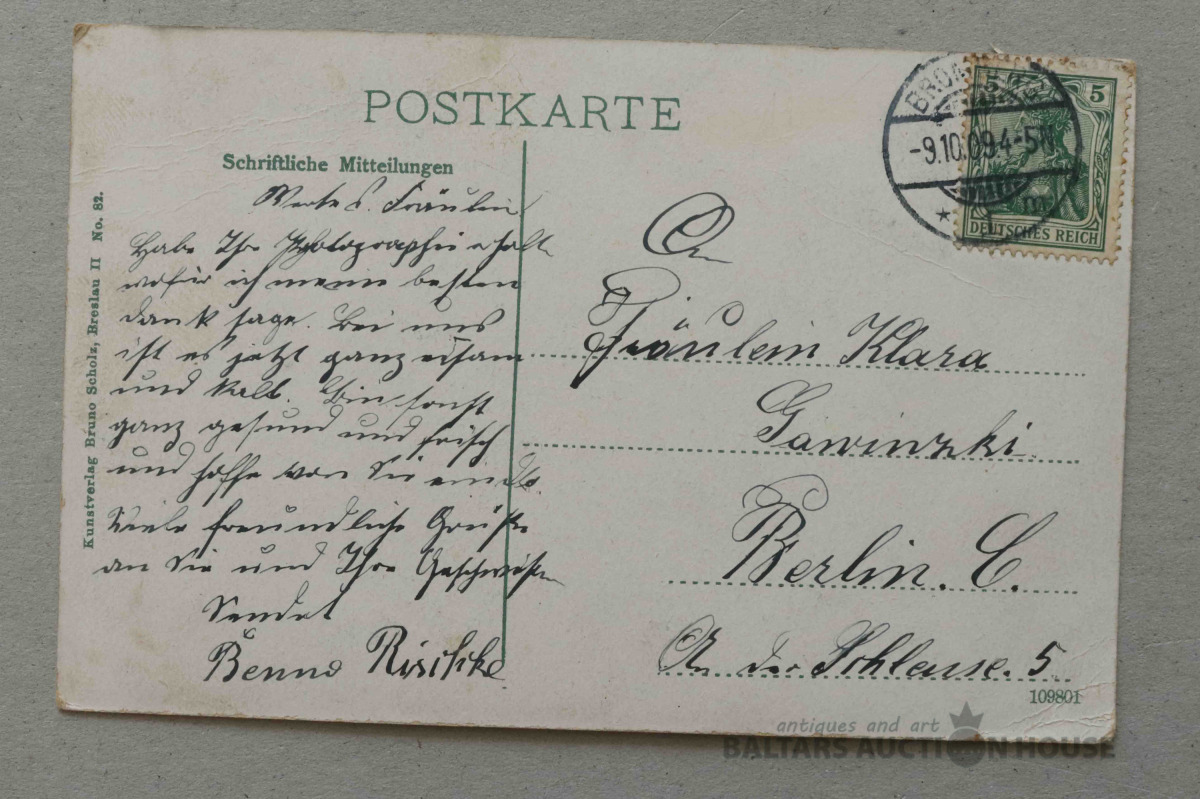 POSTKARTE
Schriftliche Mitteilungen
Wertes Fräulein
Habe Ihre Photographie erhalt
wofür ich meine besten
dank sage. Bei uns
ist es jetzt ganz einsam
und kalt. Bin sonst
ganz gesund und frisch
und hoffe von Sie ein
Viele freundliche Grüße
an Sie und Ihre Geschwister
Sendet
Benno
Kunstverlag Bruno Scholz, Breslau II No. 82.
BROM
-9.10.09.4-5N
5 5
DEUTSCHES REICH
An
Fräulein Klara
Gawinzki
Berlin. C.
An der Schleuse. 5
109801
antiques and art
BALTARS AUCTION HOUSE